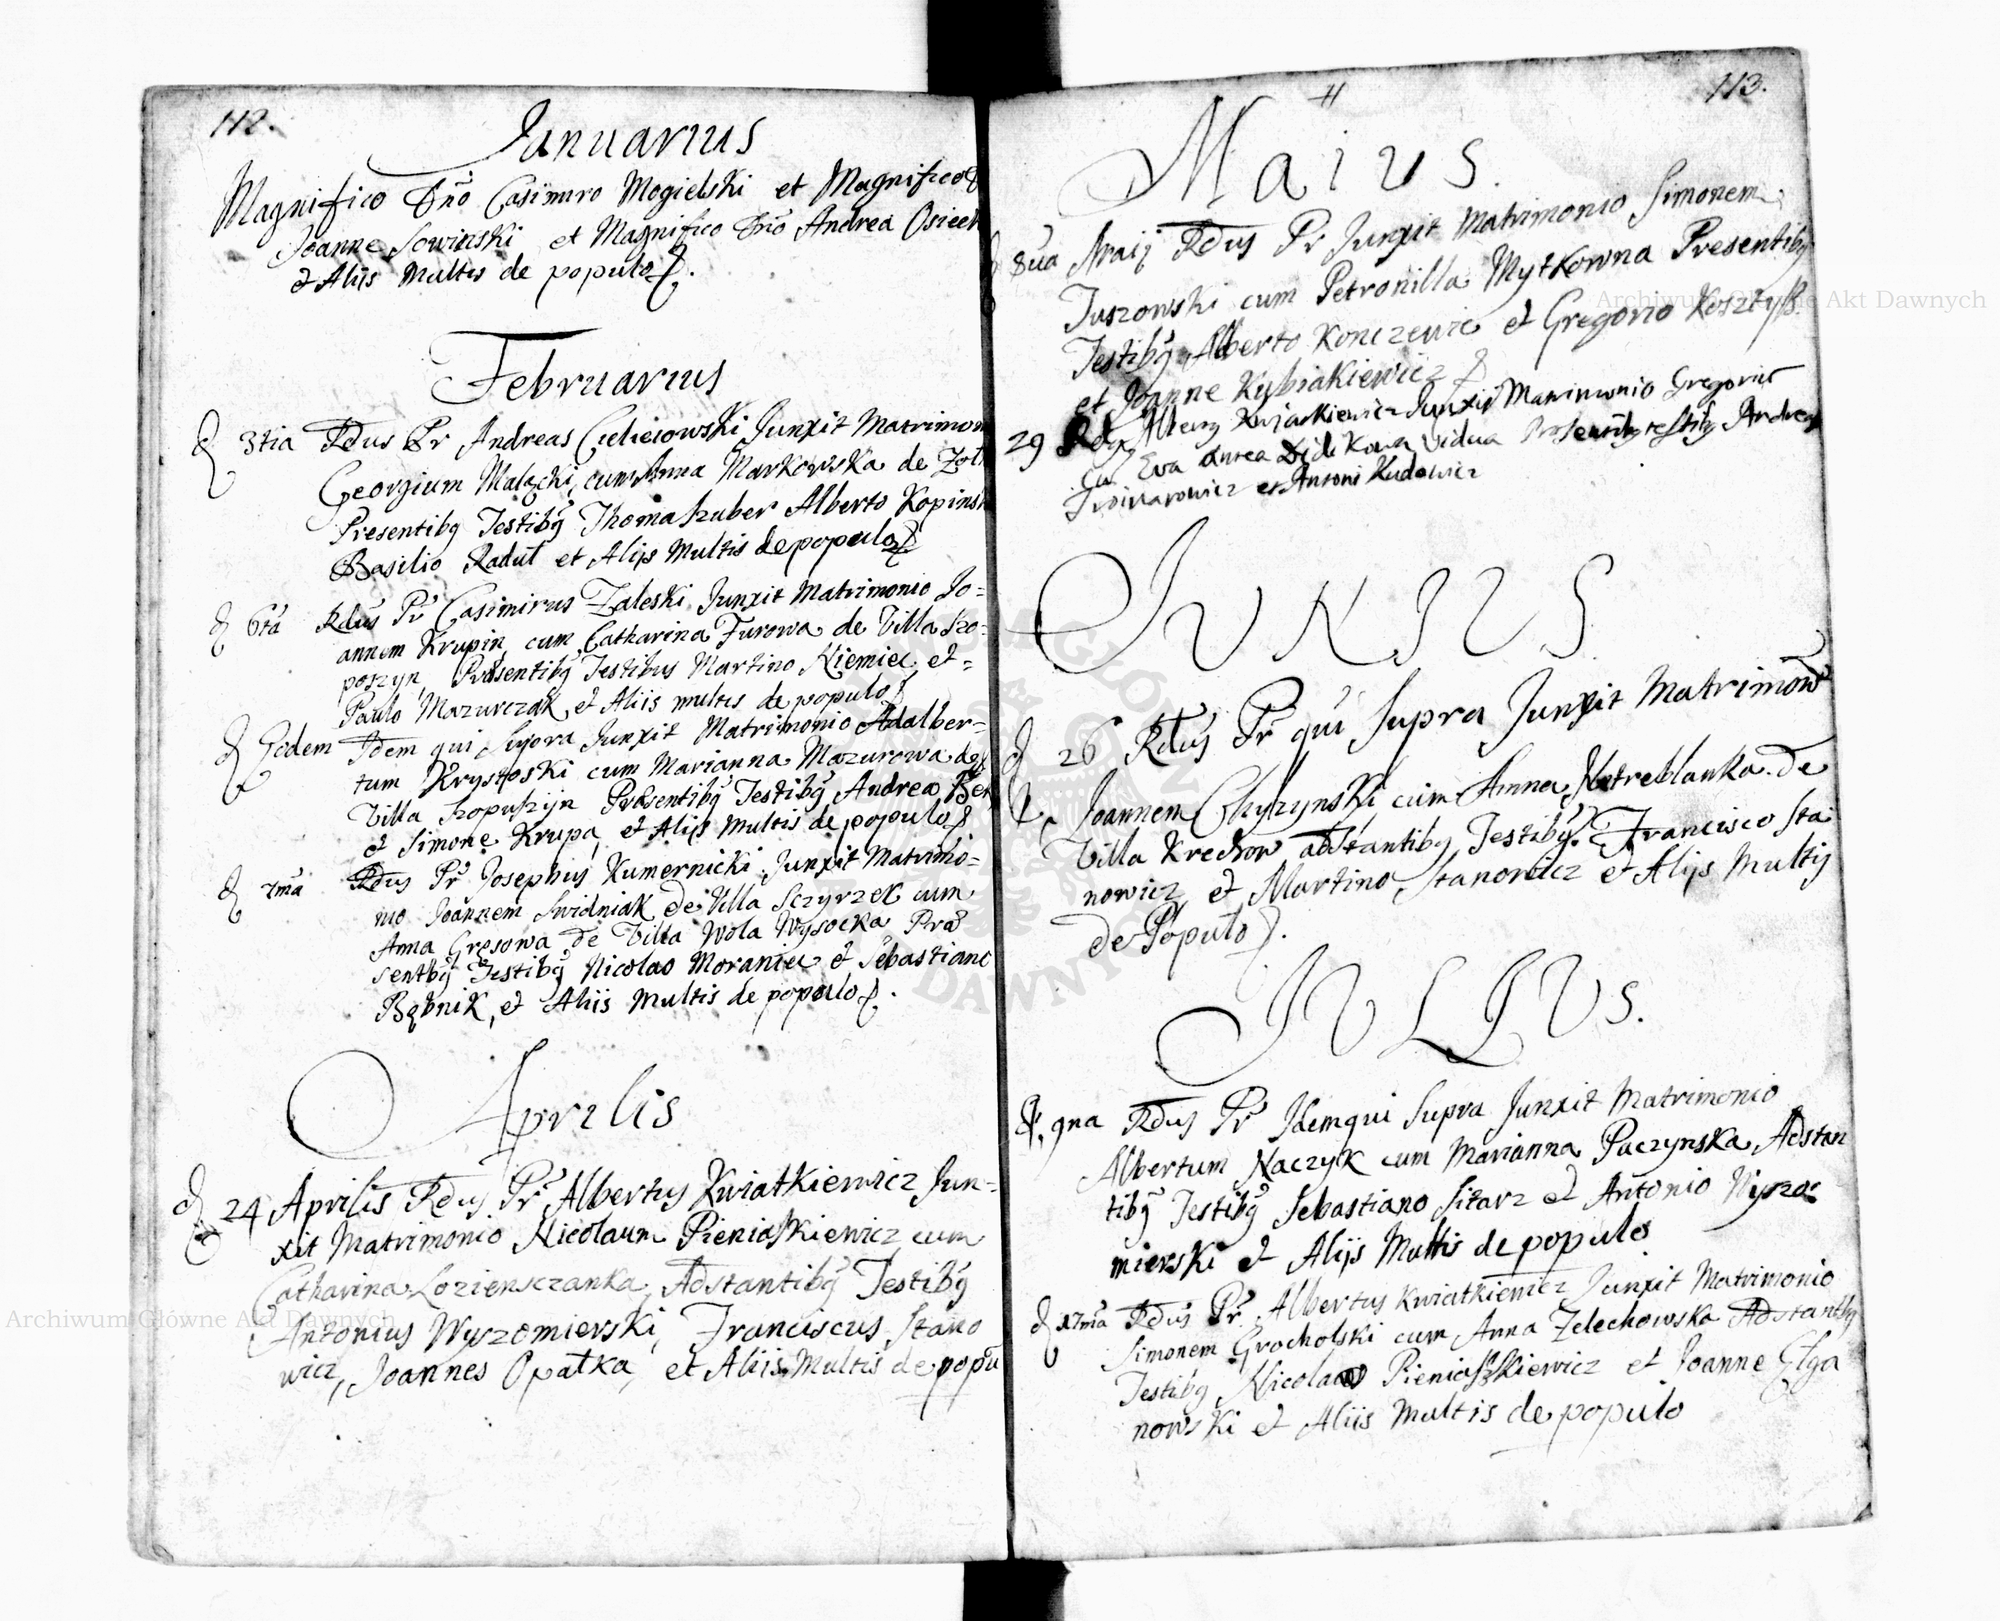 112.
Januarius
Magnifico Dño Casimiro Mogielski et Magnifico D
Joanne Sowinski et Magnifico Dño Andrea Osieck
et Aliis Multis de populo.
Februarius
d 3tia Rdus Pr Andreas Junxit Matrimon
Georgium Malęcki, cum Anna Markowska de
Presentibg Testibg Thoma Szuber Alberto Kopinsk
Basilio Radut et Alijs Multis de populo
d 6ta Rdus Pr Casimirus Zaleski Junxit Matrimonio Jo=
annem Krupin, cum Catharina Furowa de Villa Szo=
poszyn, Præsentibg Testibus Martino Niemiec, et=
Paulo Mazurczak, et Aliis multis de populo
d Eodem Idem qui Supra Junxit Matrimonio Adalber=
tum Krystoski cum Marianna Mazurowa de
Villa Szopuszyn Præsentibg Testibg Andrea
et Simone Krupa, et Alijs Multis de populo
d 7ma Rdus Pr Josephus Kumernicki Junxit Matrimo=
nio Joannem Swidniak de Villa Sczyrzek cum
Anna Gręsowa de Villa Wola Wysocka Præ
sentbg Testibg Nicolao Moraniec et Sebastiano
Bębnik, et Aliis Multis de populo.
Aprilis
d 24 Aprilis Rdus Pr Albertus Kwiatkiewicz Jun=
xit Matrimonio Nicolaum Pieniaskiewicz cum
Catharina Lozienszczanka, Adstantibg Testibg
Antonius Wyszomierski, Franciscus Stano
wicz, Joannes Opatka, et Aliis Multis de popu
113.
Maius.
d 8ua Maij Rdus Pr Junxit Matrimonio Simonem
Juszowski cum Petronilla Mytkowna Presentibg
Testibg Alberto Konczewic et Gregorio
et Joanne Kybiakiewicz
29 Albertg Junxit Matrimonio
Eva Vidua Andrea
et Antoni Kudewicz
JUNIUS
d 26 Rdus Pr qui Supra Junxit Matrimon
Joannem Chyzynski, cum Anna de
Villa Krechow adstantibg Testibg. Francisco Sta
nowicz, et Martino Stanowicz et Alijs Multis
de Populo.
JULIUS.
d. 9na Rdus Pr Idem qui Supra Junxit Matrimonio
Albertum Naczyk cum Marianna Paczynska, Adstan
tibg Testibg Sebastiano Sitarz et Antonio Wyszo=
mierski et Alijs Multis de populo
d 17ma Rdus Pr. Albertus Kwiatkiewicz Junxit Matrimonio
Simonem Grocholski cum Anna Zelechowska Adstantbg
Testibg Nicolao Pieniaszkiewicz et Joanne Elga
nowski et Aliis Multis de populo
Archiwum Główne Akt Dawnych
Archiwum Główne Akt Dawnych